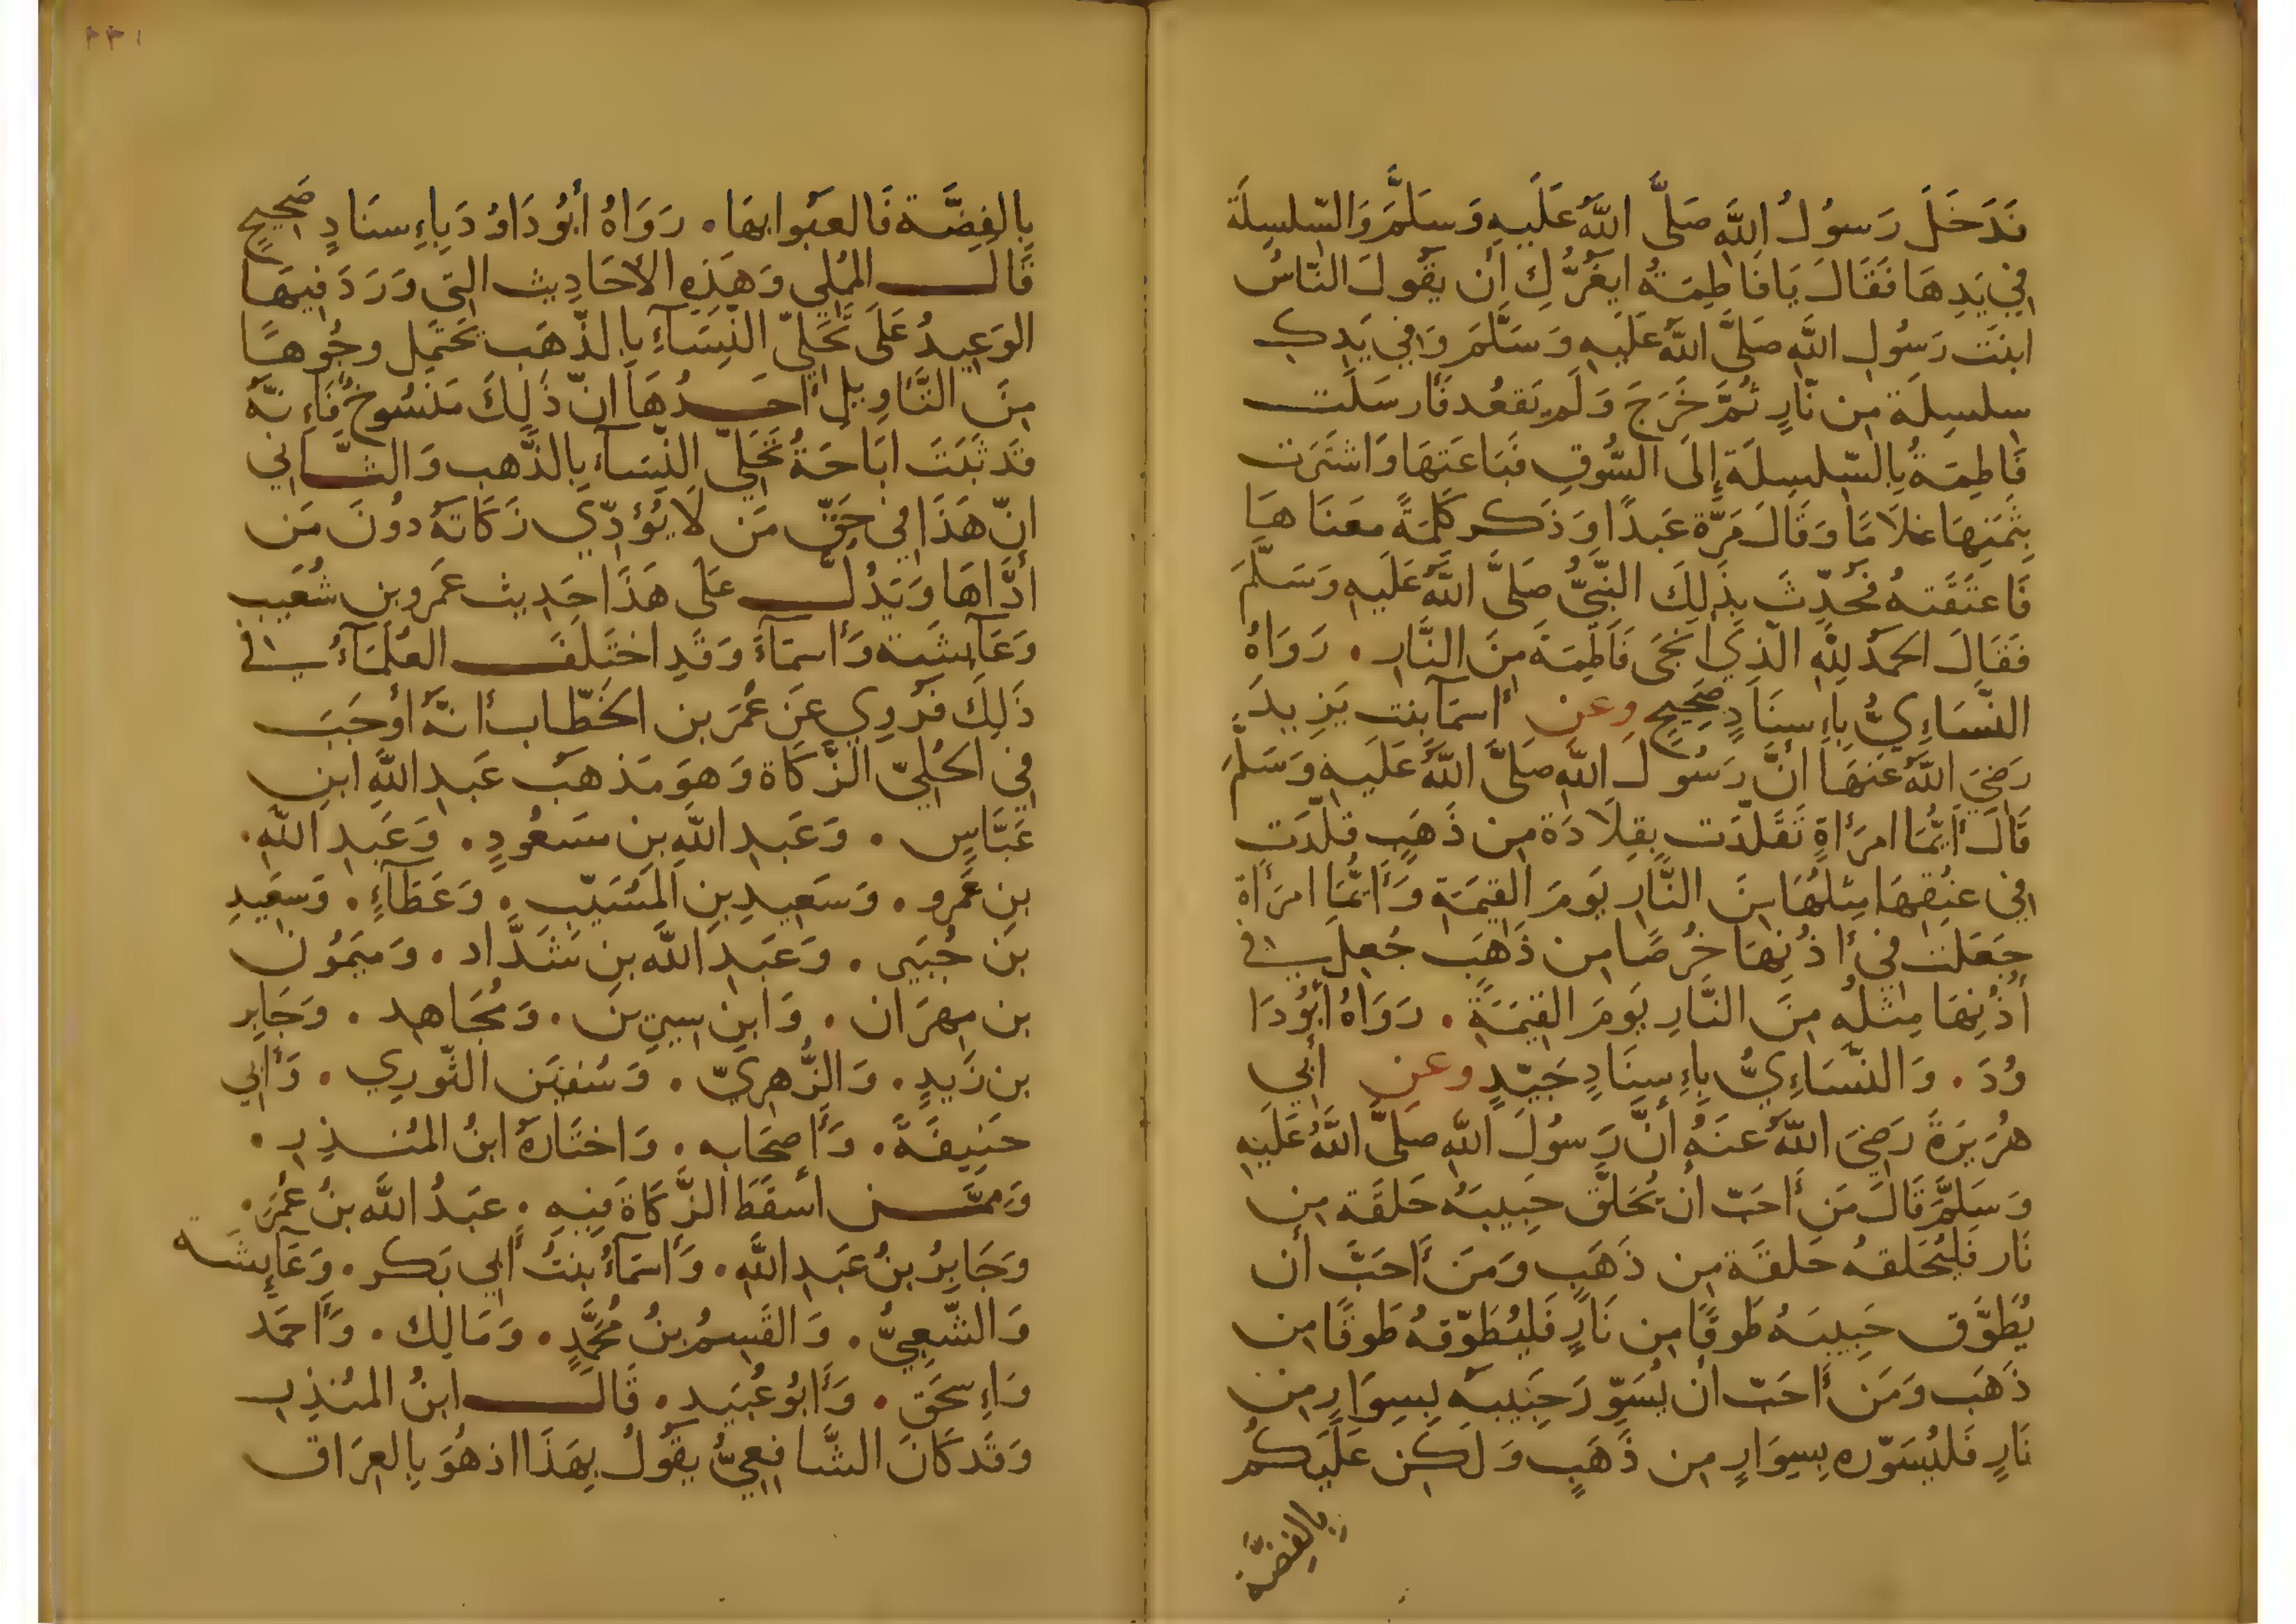 فَدَخَلَ رَسُولُ اللَّهِ صَلَّى اللَّهُ عَلَيهِ وَسَلَّمَ وَالسِّلسِلَة
فِي يَدِهَا فَقَالَ يَا فَاطِمَةُ ايَغُرُّكِ أَن يَقُولَ النَّاسُ
ابنَتَ رَسُولِ اللَّهِ صَلَّى اللَّهُ عَلَيهِ وَسَلَّمَ وَفِي يَدِكِ
سِلسِلَة مِن نَّارٍ ثُمَّ خَرَجَ وَلَم يَقعُد فَأَرسَلَت
فَاطِمَةُ بِالسِّلسِلَة إِلَى السُّوقِ فَبَاعَتهَا وَاشتَرَت
بِثَمَنِهَا غلَامًا وَقَالَ مَرَّة عَبدًا وَذَكر كَلِمَةً مَعنَاهَا
فَاعتَقَتهُ فَحُدِّثَ بِذَلِكَ النَّبِيُّ صَلَّى اللَّهُ عَلَيهِ وَسَلَّمَ
فَقَالَ الحَمدُ لِلَّهِ الَّذِي انجَى فَاطِمَةَ مِنَ النَّارِ . رَوَاهُ
النَّسَاءِيُّ بِإِسنَادٍ صَحِيحٍ وعَن أَسمَا بنت يَزِيدَ
رَضِيَ اللَّهُ عَنهَا انَّ رَسُولَ اللَّهِ صَلَّى اللَّهُ عَلَيهِ وَسَلَّمَ
قَالَ أَيُّمَا امرَأَةٍ تَقَلَّدَت بِقِلَادَة مِن ذَهَبٍ قلِّدَت
فِي عنُقِهَا مِثلُهَا مِنَ النَّارِ يَومَ القِيمَةِ وَأَيُّمَا امرَأَة
جَعَلَت فِي أُذُنِهَا خُرصًا مِن ذَهَبٍ جُعِلَ فِي
أُذُنِهَا مِثلُهِ مِنَ النَّارِ يَومَ القِيمَةِ . رَوَاهُ أَبُو دَا
وُدَ . وَالنَّسَاءِيُّ بِإِسنَادٍ جَيِّدٍ وعَن أَبِي
هُرَيرَةَ رَضِيَ اللَّهُ عَنهُ أَنَّ رَسُولَ اللَّهِ صَلَّى اللَّهُ عَلَيهِ
وَسَلَّمَ قَالَ مَن أَحَبّ أَن يُحَلِّق حَبِيبَهُ حَلقَة مِن
نَار فَليُحَلِّقهُ حَلقَة مِن ذَهَبٍ وَمَن أَحَبَّ أَن
يُطَوَّق حَبِيبَهُ طَوقًا مِن نَارٍ فَليُطَوِّقهُ طَوقًا مِن
ذَهَب وَمَن أَحَبّ أَن يُسَوِّرَ حَبِيبَه بِسِوَارٍ مِن
نَارٍ فَليُسَوِّره بِسِوَارٍ مِن ذَهَبٍ وَلَكِن عَلَيكُم
بِالفِضَّة
٢٢١
بِالفِضَّة فَالعَبُوا بِهَا . رَوَاهُ أَبُو دَاوُدَ بِإِسنَادٍ صَحِيحٍ
قَالَ المُملِي وَهَذِهِ الأَحَادِيث التِي وَرَدَ فِيهَا
الوَعِيدُ عَلَى تَحَلِّي النِّسَآءِ بِالذَّهَب تَحتَمِل وجُوهًا
مِنَ التَّاوِيلِ أَحَدُهَا انّ ذَلِكَ مَنسُوخٌ فَإِنَّهُ
قَد ثَبَتَ ابَاحَةُ تَحَلِّي النِّسَآء بِالذَّهَب وَالثَّانِي
انّ هَذَا فِي حَقّ مَن لَا يُؤدِّي زَكَاتَهُ دُونَ مَن
أَدَّاهَا وَيَدُلُّ عَلَى هَذَا حَدِيث عَمرو بن شُعَيب
وَعَآئِشَة وَأَسمَآءَ وَقَدِ اختَلَفَ العُلَمَآءُ فِي
ذَلِكَ فَرُوِي عَن عُمَرَ بن الخَطَّاب أَنَّهُ أَوجَبَ
فِي الحُلِيّ الزَّكَاة وَهوَ مَذهَبُ عَبدِ اللَّهِ ابنِ
عَبَّاسٍ . وَعَبدِ اللَّهِ بنِ مَسعُودٍ . وَعَبدِ اللَّهِ .
بنِ عَمرو . وَسَعِيدِ بنِ المُسَيّبِ . وَعَطَآءٍ . وَسَعِيدِ
بن جُبَير . وَعَبدِ اللَّهِ بنِ شَدَّاد . وَمَيمُون
بن مِهرَان . وَابنِ سِيرِين . وَمُجَاهد . وَجَابِر
بن زَيدٍ . وَالزُّهرِيّ . وَسُفيَن الثَّورِي . وَأَبِي
حَنِيفَةَ . وَأَصحَابِه . وَاختَارَهُ ابنُ المُنذِرِ .
وَمِمَّن أَسقَطَ الزَّكَاةَ فِيهِ . عَبدُ اللَّه بنُ عُمَرَ .
وَجَابِرُ بنُ عَبدِ اللَّهِ . وَأَسمَآءُ بنتُ أَبِي بَكر . وَعَآئِشَة
وَالشَّعبِيُّ . وَالقَسِمُ بنُ مُحَمَّدٍ . وَمَالِك . وَأَحمَد
وَإِسحَق . وَأَبُو عُبَيد . قَالَ ابنُ المُنذِر
وَقَد كَانَ الشَّافِعِيُّ يَقُولُ بِهَذَا اذ هُوَ بِالعِرَاق